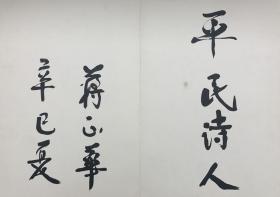 平民诗人
蒋正华
辛巳夏